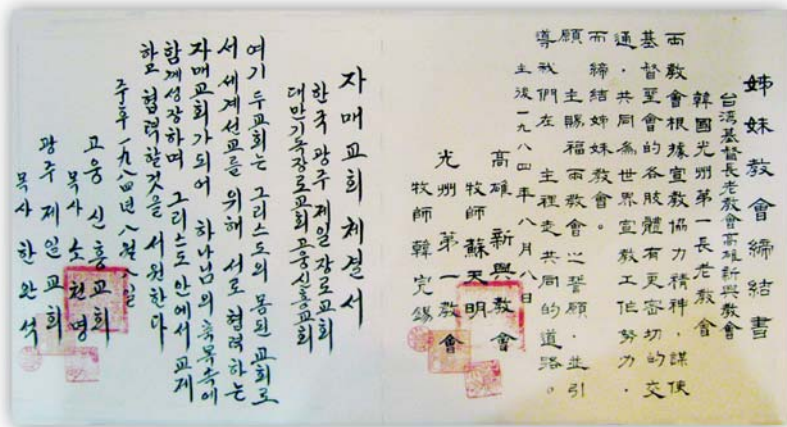 姊妹教會締結書
台湾基督長老教會高雄新興教會
韓國光州第一長老教會
兩教會根據宣教協力精神，謀使
基督聖會的各肢體有更密切的交
通，共同為世界宣教工作努力，
而締結姊妹教會。
願 主賜福兩教會之誓願，並引
導我們在 主裡走共同的道路。
主後一九八四年八月八日
高雄 新興教會
牧師 蘇天明
光州第一教會
牧師 韓完錫
자매교회 체결서
한국 광주 제일장로교회
대만기독장로교회 고웅신흥교회
여기 두교회는 그리스도의 몸된 교회로
서 세계선교를 위해 서로 협력하는
자매교회가 되어 하나님의 축복속에
함께성장하며 그리스도 안에서 교제
하고 협력할것을 서원한다
주후 一九八四년 八월 八일
고웅 신흥교회
목사 소천명
광주 제일교회
목사 한완석